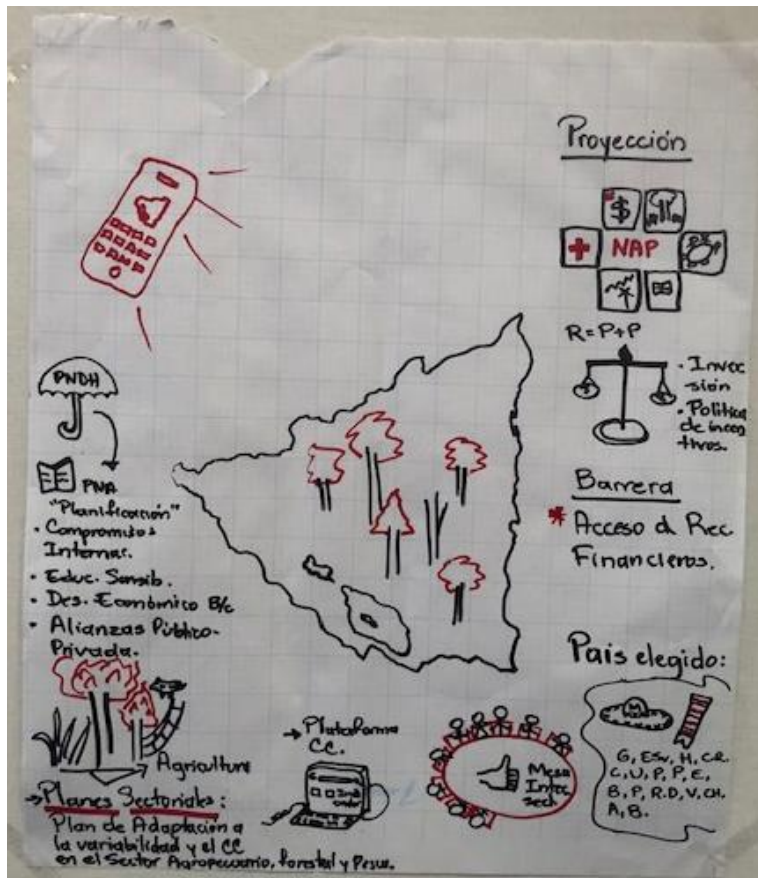 Proyección
$
NAP
R=P+P
• Invec
sión
• Política
de incen
tivos.
Barrera
* Acceso a Rec
Financieros.
País elegido:
M
G, ESv, H, C.R.
C, U, P, P, E,
B, P, R.D, V, CH.
A, B.
PNDH
PNA
"Planificación"
• Compromisos
Internac.
• Educ. Sensib.
• Des. Económico B/c
• Alianzas Público-
Privada.
→ Agricultura
→ Planes Sectoriales:
Plan de Adaptación a
la variabilidad y el CC
en el Sector Agropecuario, forestal y Pesca.
→ Plataforma
CC.
Mesa